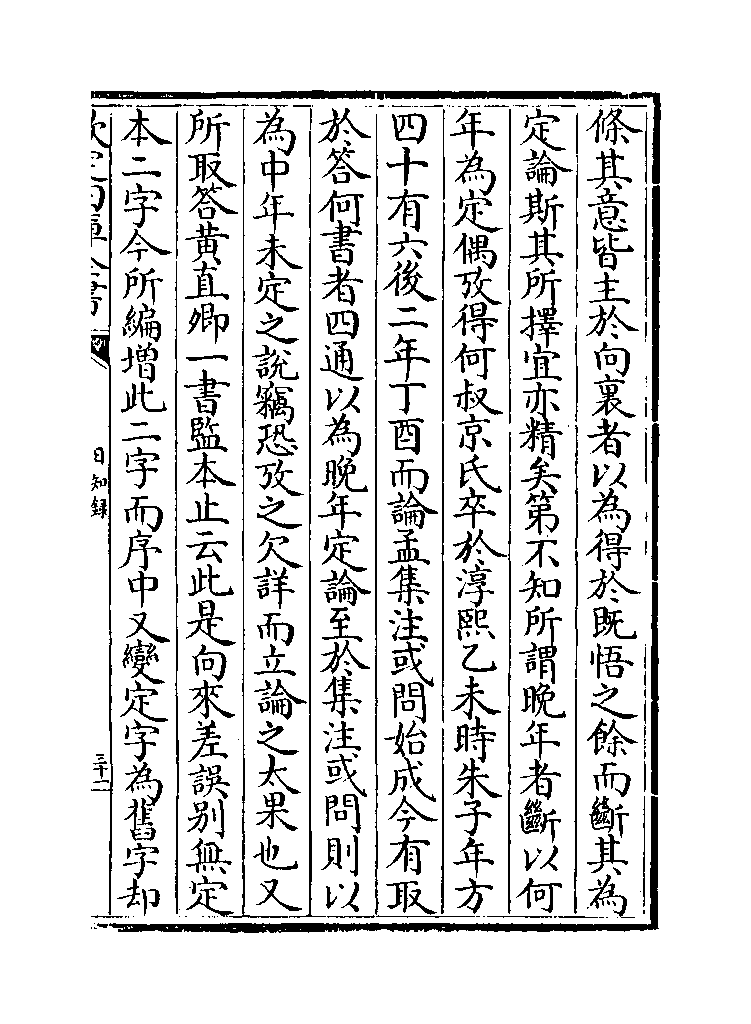 條其意皆主於向裏者以為得於既悟之餘而斷其為
定論斯其所擇宜亦精矣第不知所謂晚年者斷以何
年為定偶攷得何叔京氏卒於淳熙乙未時朱子年方
四十有六後二年丁酉而論孟集注或問始成今有取
於答何書者四通以為晚年定論至於集注或問則以
為中年未定之說竊恐攷之欠詳而立論之太果也又
所取答黃直卿一書監本止云此是向來差誤別無定
本二字今所編增此二字而序中又變定字為舊字却
欽定四庫全書
日知錄
三十二